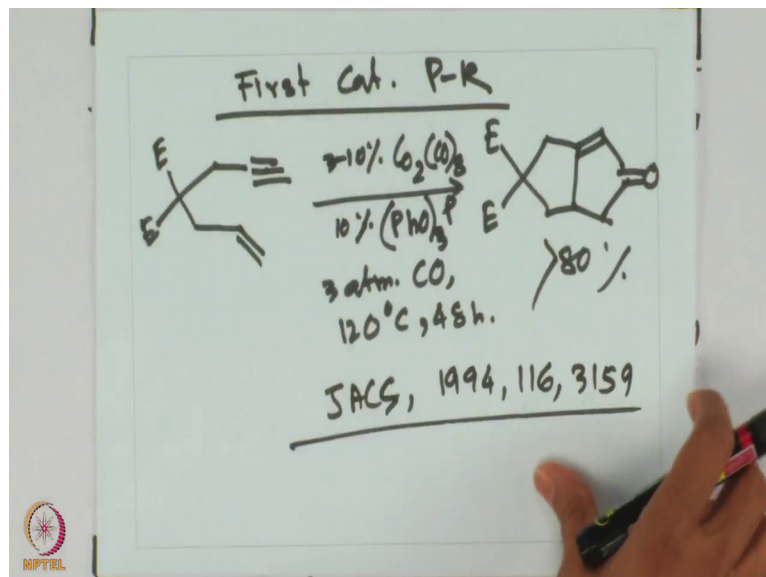 First Cat. P-R
E
E
3-10% Co2(CO)8
10% (PhO)3P
3 atm. CO,
120°C, 48h.
E
E
O
>80%
JACS, 1994, 116, 3159
NPTEL